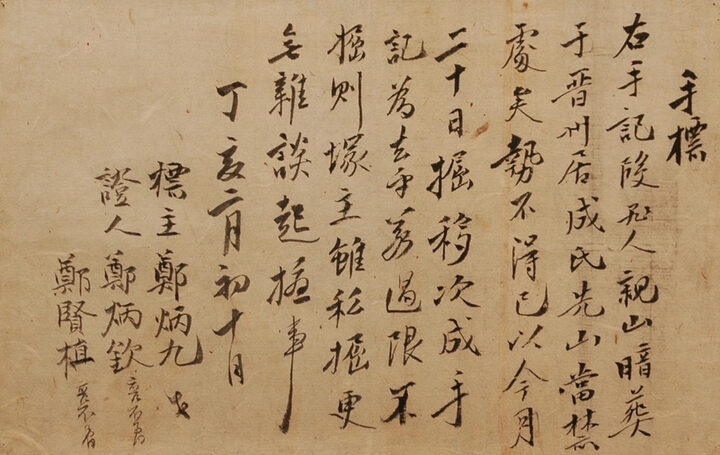 手標
右手記段人親山暗葬
于晋州居成氏先山當禁
處矣勢不得已以今月
二十日掘移次成手
記為去乎若過限不
掘則塚主雖私掘更
無雜談起事
丁亥二月初十日
標主鄭炳九
證人鄭炳欽
鄭賢植